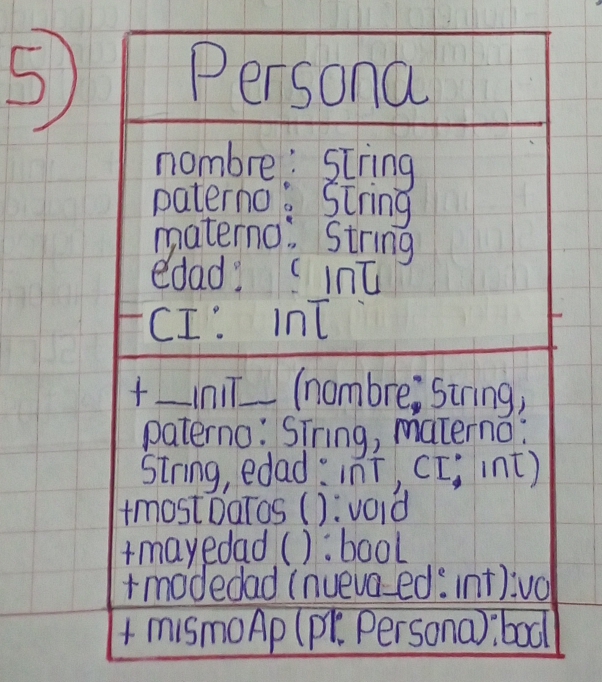 5)
Persona
nombre: String
paterno: String
materno: String
edad: : int
CI: int
+ __init__ (nombre: String,
paterno: String, materno:
String, edad: int, CI: int)
+mostDatos (): void
+mayedad (): bool
+modedad (nueva_ed: int): vo
+ mismoAp (p1: Persona): bool